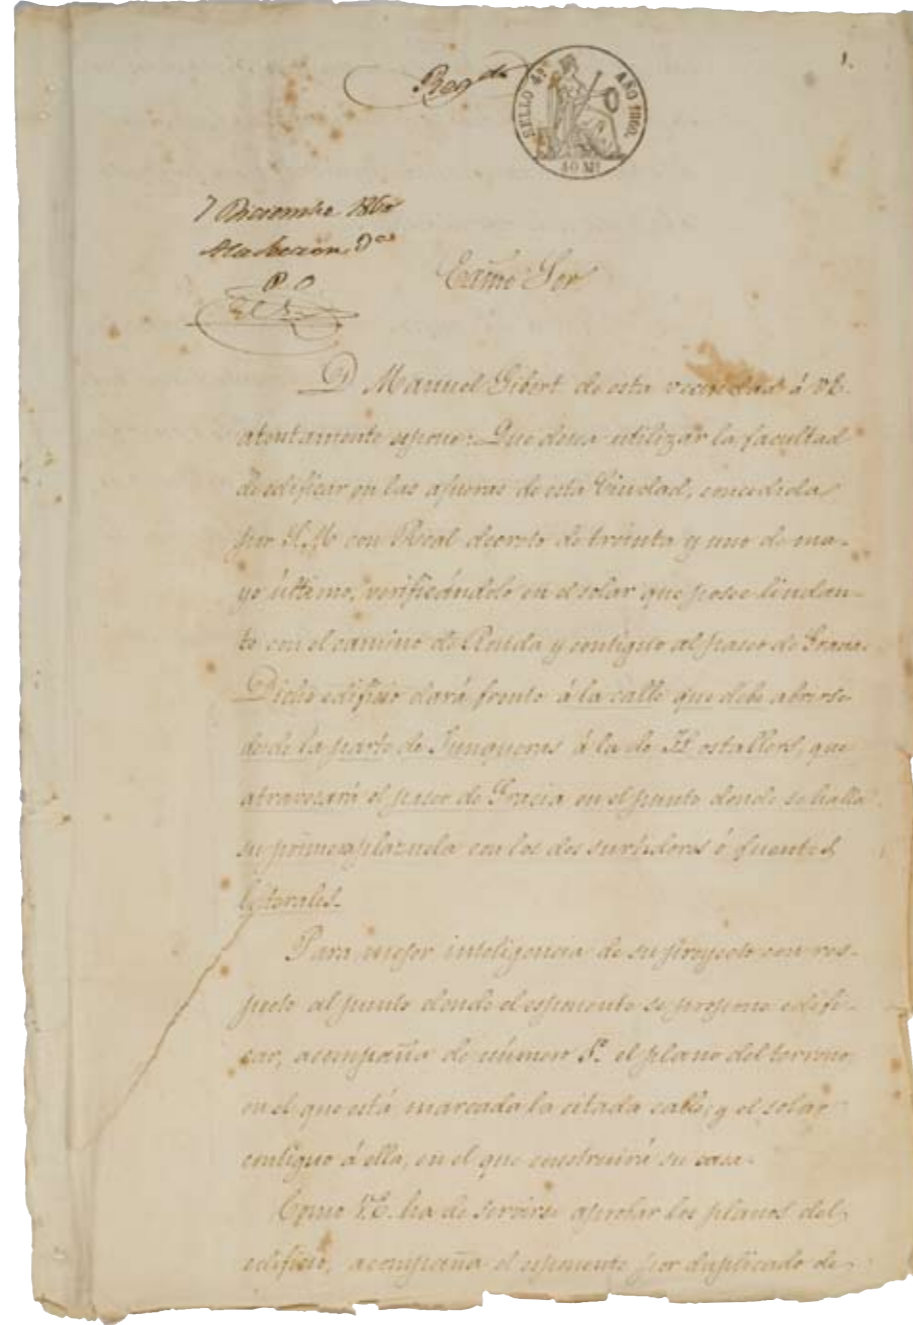 1.
SELLO 4º AÑO 1860.
40 Ms
7 Diciembre 1860
A la Seccion 2ª
P. O.
Exmo Sor
D Manuel Gibert de esta vecindad á VE.
atentamente espone: Que desea utilizar la facultad
de edificar en las afueras de esta Ciudad, concedida
por S.M. con Real decreto de treinta y uno de ma-
yo último, verificándolo en el solar que posee lindan-
te con el camino de Ronda y contiguo al paseo de Gracia.
Dicho edificio dará frente á la calle que debe abrirse
desde la parte de Junqueras á la de Tallers, que
atravesará el paseo de Gracia en el punto donde se halla
su primera plazuela con los dos surtidores ó fuentes
laterales.
Para mejor inteligencia de su proyecto con res-
pecto al punto donde el esponente se propone edifi-
car, acompaña de número 1º el plano del terreno
en el que está marcada la citada calle, y el solar
contiguo á ella, en el que construirá su casa.
Como V.E. ha de servirse aprobar los planos del
edificio, acompaña el esponente por duplicado de